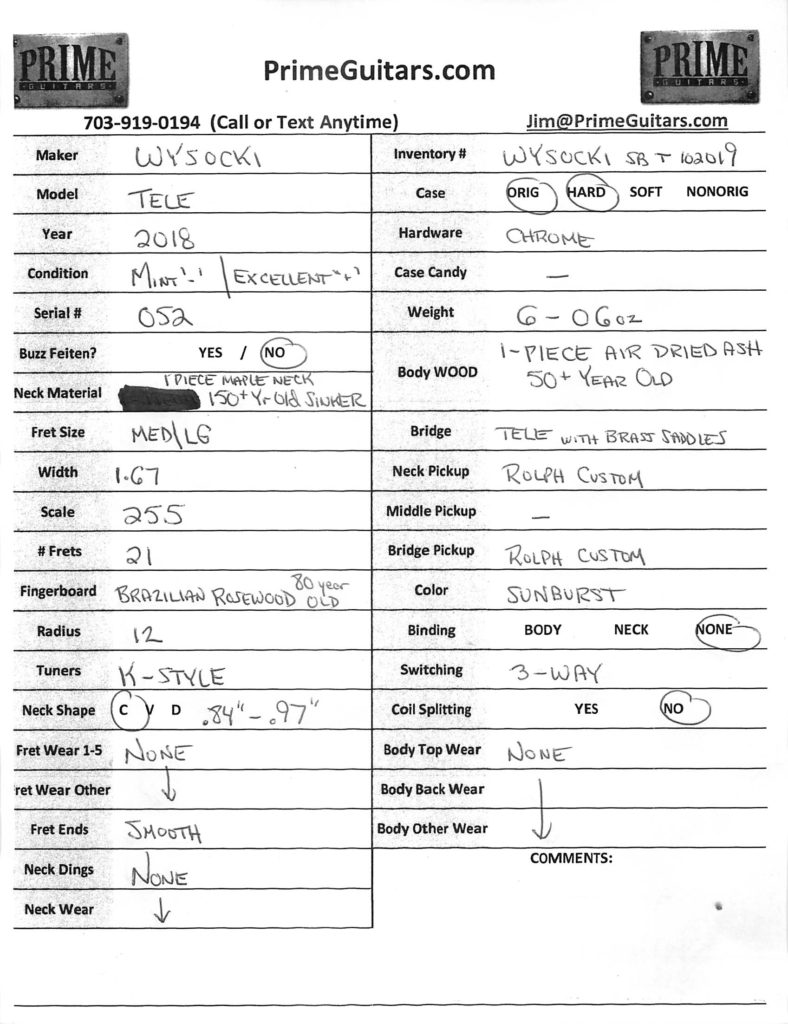 PRIME
GUITARS
PrimeGuitars.com
PRIME
GUITARS
703-919-0194 (Call or Text Anytime)
Jim@PrimeGuitars.com
Maker WYSOCKI
Model TELE
Year 2018
Condition MINT '-' / EXCELLENT "+"
Serial # 052
Buzz Feiten? YES / NO
Neck Material 1 PIECE MAPLE NECK
150+ Yr Old SINKER
Fret Size MED\LG
Width 1.67
Scale 25.5
# Frets 21
Fingerboard BRAZILIAN ROSEWOOD 80 year OLD
Radius 12
Tuners K-STYLE
Neck Shape C V D .84" - .97"
Fret Wear 1-5 NONE
ret Wear Other ↓
Fret Ends SMOOTH
Neck Dings NONE
Neck Wear ↓
Inventory # WYSOCKI SB T 102019
Case ORIG HARD SOFT NONORIG
Hardware CHROME
Case Candy —
Weight 6 - 06oz
Body WOOD 1-PIECE AIR DRIED ASH
50+ YEAR OLD
Bridge TELE WITH BRASS SADDLES
Neck Pickup ROLPH CUSTOM
Middle Pickup —
Bridge Pickup ROLPH CUSTOM
Color SUNBURST
Binding BODY NECK NONE
Switching 3-WAY
Coil Splitting YES NO
Body Top Wear NONE
Body Back Wear
Body Other Wear ↓
COMMENTS: